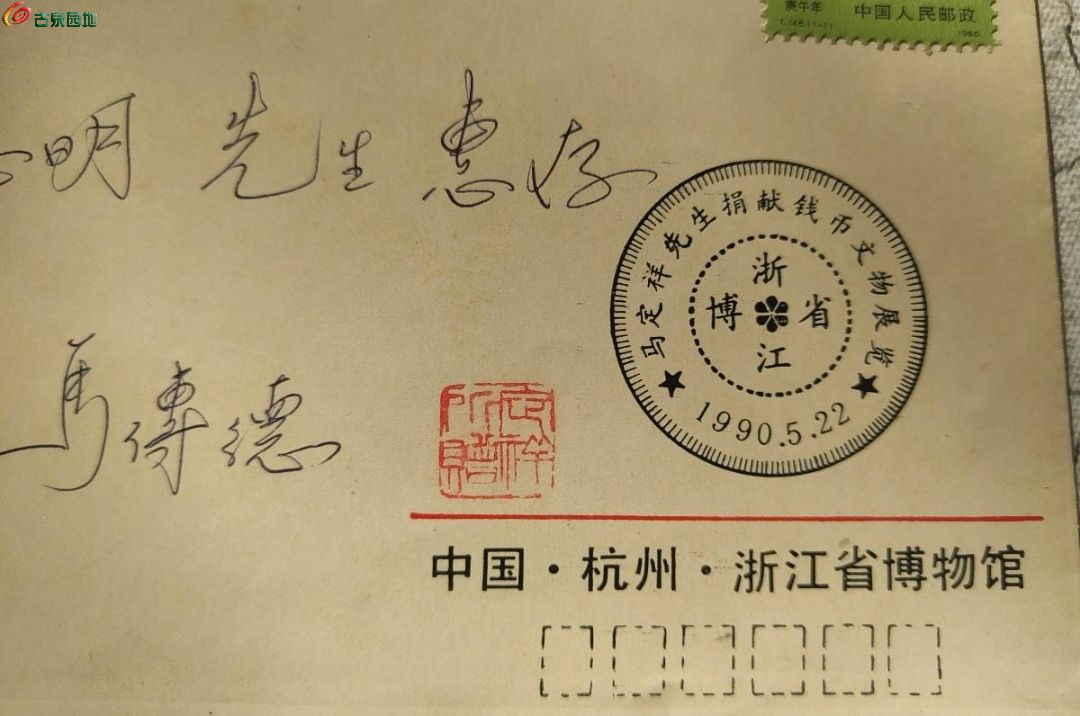 古泉园地
庚午年
T.146.(1-1)
中国人民邮政
1990
明 先生惠存
马定祥先生捐献钱币文物展览
浙江省博
1990.5.22
馬傳德
定祥所贈
中国·杭州·浙江省博物馆